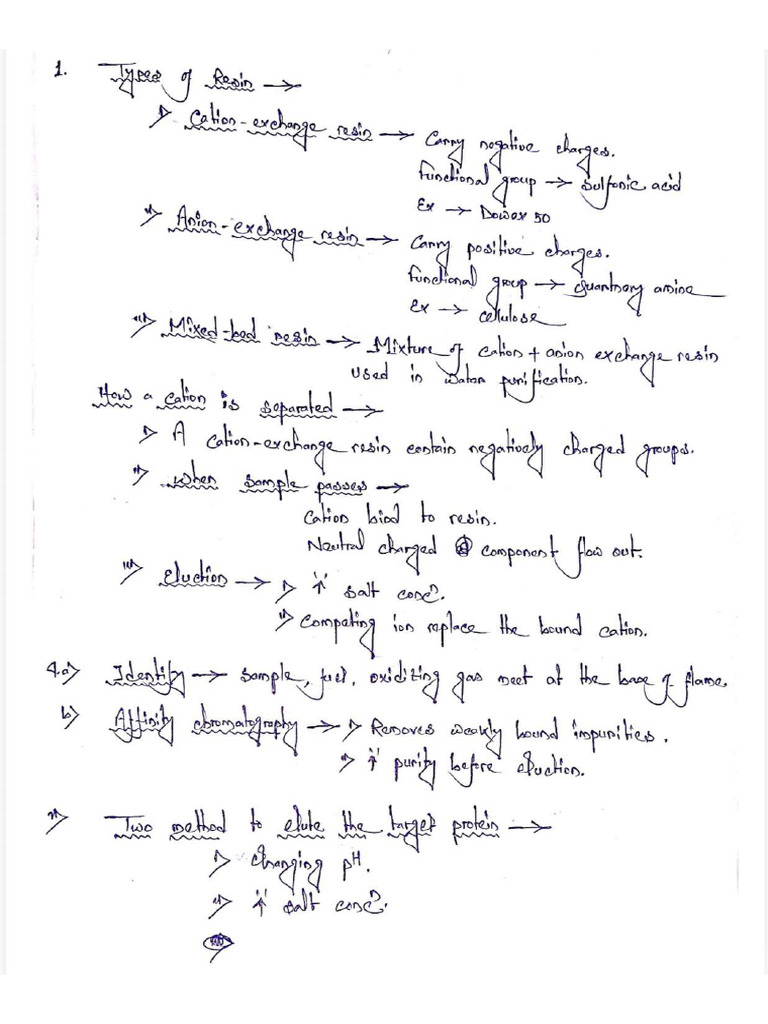 1. Types of Resin →
i) Cation-exchange resin → Carry negative charges.
Functional group → Sulfonic acid
Ex → Dowex 50
ii) Anion-exchange resin → Carry positive charges.
Functional group → quantnery amine
Ex → cellulose
iii) Mixed-bed resin → Mixture of cation + anion exchange resin
used in water purification.
How a cation is separated →
i) A cation-exchange resin contain negatively charged groups.
ii) when sample passes →
Cation bind to resin.
Neutral charged component flow out.
iii) Eluction → i) ↑ salt conc?.
ii) Competing ion replace the bound cation.
4.a) Identify → Sample, fuel, oxiditing gas meet at the base of flame.
b) Affinity chromatography → i) Removes weakly bound impurities.
ii) ↑ purity before eluction.
ii) Two method to elute the target protein →
i) Changing pH.
ii) ↑ salt conc?.